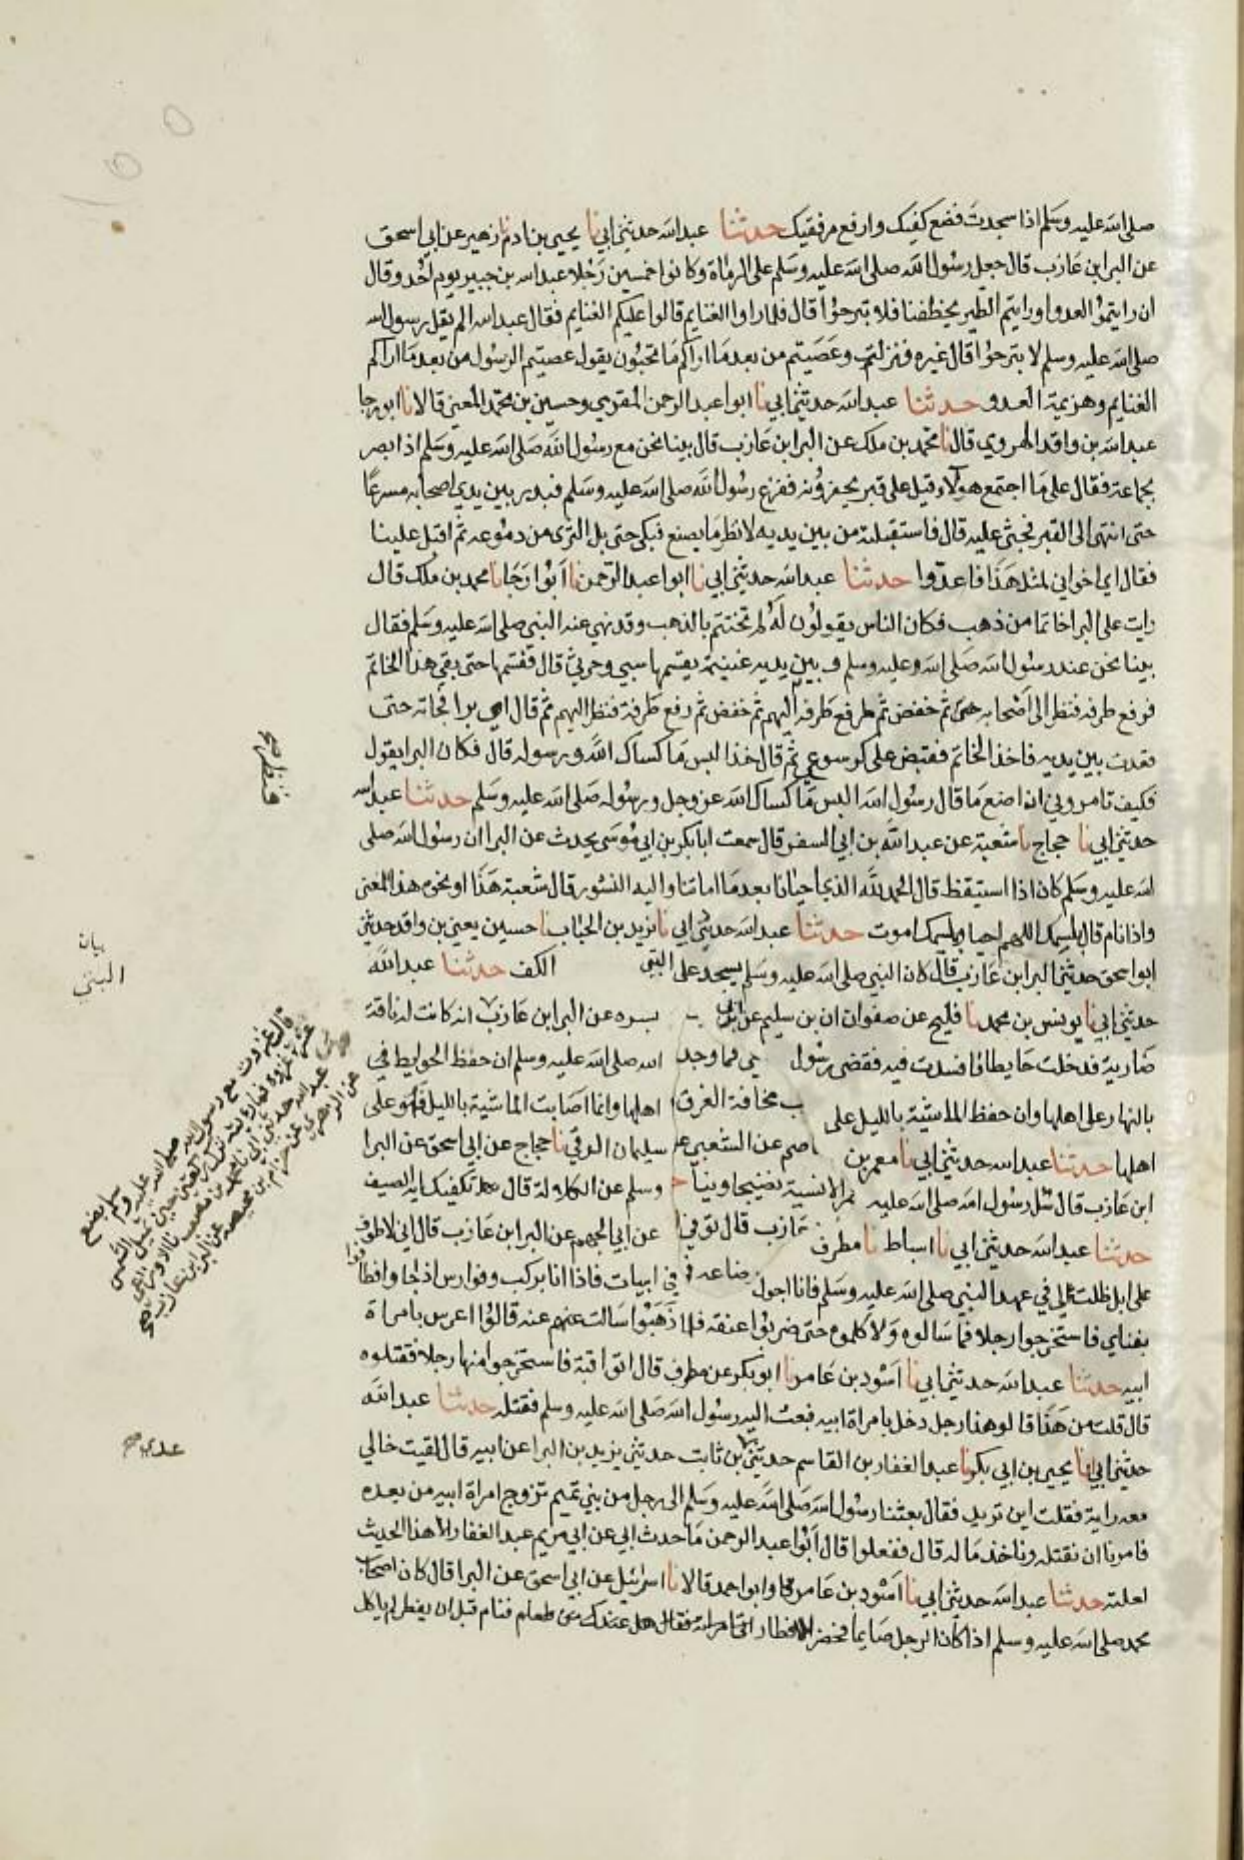 صلى الله عليه وسلم اذا سجدت فضع كفيك وارفع مرفقيك حدثنا عبد الله حدثني ابي نا يحيى بن ادم نا زهير عن ابي اسحق
عن البرا بن عازب قال جعل رسول الله صلى الله عليه وسلم على الرماة وكانوا خمسين رجلا عبد الله بن جبير يوم احد وقال
ان رايتموا العدو او رايتم الطير يخطفنا فلا تبرحوا قال فلما راوا الغنايم قالوا عليكم الغنايم فقال عبد الله الم يقل رسول الله
صلى الله عليه وسلم لا تبرحوا قال غيره فنزلت وعصيتم من بعد ما اراكم ما تحبون يقول عصيتم الرسول من بعد ما اراكم
الغنايم وهزيمة العدو حدثنا عبد الله حدثني ابي نا ابو عبد الرحمن المقري وحسين بن محمد المعنى قالا نا ابو رجا
عبد الله بن واقد الهروي قال نا محمد بن ملك عن البرا بن عازب قال بينا نحن مع رسول الله صلى الله عليه وسلم اذ ابصر
بجماعة فقال على ما اجتمع هولاء قيل على قبر يحفرونه ففزع رسول الله صلى الله عليه وسلم فبدر بين يدي اصحابه مسرعا
حتى انتهى الى القبر فجثى عليه قال فاستقبلته من بين يديه لانظر ما يصنع فبكى حتى بل الثرى من دموعه ثم اقبل علينا
فقال اي اخواني لمثل هذا فاعدوا حدثنا عبد الله حدثني ابي نا ابو عبد الرحمن نا ابو رجا نا محمد بن ملك قال
رايت على البرا خاتما من ذهب فكان الناس يقولون له لم تختتم بالذهب وقد نهى عنه النبي صلى الله عليه وسلم فقال
بينا نحن عند رسول الله صلى الله عليه وسلم وبين يديه غنيمة يقسمها سبي وخرثي قال فقسمها حتى بقي هذا الخاتم
فرفع طرفه فنظر الى اصحابه ثم خفض ثم رفع طرفه اليهم ثم خفض ثم رفع طرفه فنظر اليهم ثم قال اي برا فجاته حتى
قعدت بين يديه فاخذ الخاتم فقبض على كرسوعي ثم قال خذ البس ما كساك الله ورسوله قال فكان البرا يقول
فكيف تامروني ان اضع ما قال رسول الله البس ما كساك الله عز وجل ورسوله صلى الله عليه وسلم حدثنا عبد الله
حدثني ابي نا حجاج نا شعبة عن عبد الله بن ابي السفر قال سمعت ابا بكر بن ابي موسى يحدث عن البرا ان رسول الله صلى
الله عليه وسلم كان اذا استيقظ قال الحمد لله الذي احيانا بعد ما اماتنا واليه النشور قال شعبة هذا او نحو هذا المعنى
واذا نام قال اللهم احيا وباسمك اموت حدثنا عبد الله حدثني ابي نا زيد بن الحباب نا حسين يعني بن واقد حدثني
ابو اسحق حدثني البرا بن عازب قال كان النبي صلى الله عليه وسلم يسجد على التي الكف حدثنا عبد الله
حدثني ابي نا يونس بن محمد نا فليح عن صفوان بن سليم عن ابي بسره عن البرا بن عازب انه كانت له ناقة
ضارية فدخلت حايطا فافسدت فيه فقضى رسول الله صلى الله عليه وسلم ان حفظ الحوايط في
بالنهار على اهلها وان حفظ الماشية بالليل على اهلها وانما اصابت الماشية بالليل فهو على
اهلها حدثنا عبد الله حدثني ابي نا معمر بن سليمان الرقي نا حجاج عن ابي اسحق عن البرا
ابن عازب قال سئل رسول الله صلى الله عليه وسلم عن الكلالة قال تكفيك اية الصيف
حدثنا عبد الله حدثني ابي نا اسباط نا مطرف عن ابي الجهم عن البرا بن عازب قال اني لاطوف
على ابل ضلت لي في عهد النبي صلى الله عليه وسلم فانا اجول في ابيات فاذا انا بركب وفوارس اذ جاوا فطافوا
بفناي فاستخرجوا رجلا فما سالوه ولا كلموه حتى ضربوا عنقه فلما ذهبوا سالت عنه قالوا اعرس بامراة
ابيه حدثنا عبد الله حدثني ابي نا اسود بن عامر نا ابو بكر عن مطرف قال اتوا قبة فاستخرجوا منها رجلا فقتلوه
قال قلت من هذا قالوا هذا رجل دخل بامراة ابيه فبعث اليه رسول الله صلى الله عليه وسلم فقتله حدثنا عبد الله
حدثني ابي نا يحيى بن ابي بكير نا عبد الغفار بن القاسم حدثني بن ثابت حدثني يزيد بن البرا عن ابيه قال لقيت خالي
معه راية فقلت اين تريد فقال بعثنا رسول الله صلى الله عليه وسلم الى رجل من بني تميم تزوج امراة ابيه من بعده
فامرنا ان نقتله وناخذ ماله قال ففعلوا قال ابو عبد الرحمن ما حدث ابي عن ابي مريم عبد الغفار الا هذا الحديث
لعلته حدثنا عبد الله حدثني ابي نا اسود بن عامر وابو احمد قالا نا اسرائيل عن ابي اسحق عن البرا قال كان اصحاب
محمد صلى الله عليه وسلم اذا كان الرجل صايما فحضر الافطار فقال هل عندك من طعام فنام قبل ان يفطر لم ياكل
فنظر صح
بيان
البني
عدي صح